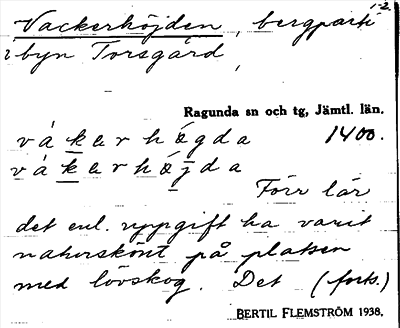 1-2.
Vackerhöjden, bergparti
i byn Torsgård,
Ragunda sn och tg, Jämtl. län.
vákerhögda 1400.
vákerhöjda
Förr lär
det enl. uppgift ha varit
naturskönt på platsen
med lövskog. Det (forts.)
BERTIL FLEMSTRÖM 1938.